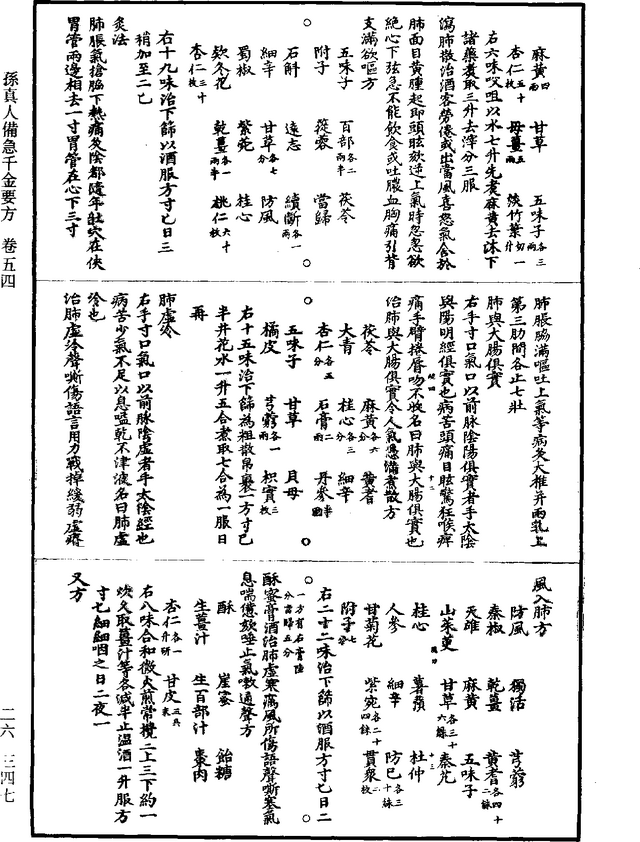 孫真人備急千金要方　卷五四
二六—三四七
麻黄四兩　甘草　五味子各三兩
杏仁五十枚　母薑五兩　淡竹葉切一升
右六味㕮咀以水七升先煮麻黄去沫下
諸藥煮取三升去滓分三服
瀉肺散治酒客勞倦或出當風喜怒氣舍於
肺面目黄腫起即頭眩欬逆上氣時忽忽欲
絕心下弦急不能飲食或吐膿血胸痛引背
支滿欲嘔方
五味子　百部各二兩半　茯苓
附子　蓯蓉　當歸
石斛　遠志　續斷各一兩
細辛　甘草各七分　防風
蜀椒　紫菀　桂心
欵冬花　乾薑各一兩半　桃仁六十枚
杏仁三十枚
右十九味治下篩以酒服方寸匕日三
稍加至二匕
灸法
肺脹氣搶脇下熱痛灸陰都隨年壯穴在俠
胃管兩邊相去一寸胃管在心下三寸
肺脹脇滿嘔吐上氣等病灸大椎并兩乳上
第三肋間各止七壯
肺與大腸俱實
右手寸口氣口以前脉陰陽俱實者手太陰
與陽明經俱實也病苦頭痛目眩驚狂喉痺
痛手臂捲唇吻不收名曰肺與大腸俱實也
治肺與大腸俱實令人氣憑滿煮散方
茯苓　麻黄各六分　黄耆
大青　桂心各三分　細辛
杏仁各五分　石膏二兩　丹參半兩
五味子　甘草　貝母
橘皮　芎藭各一兩　枳實三枚
右十五味治下篩為粗散帛裹一方寸匕
半井花水一升五合煮取七合為一服日
再
肺虛冷
右手寸口氣口以前脉陰虛者手太陰經也
病苦少氣不足以息嗌乾不津液名曰肺虛
冷也
治肺虛冷聲嘶傷語言用力戰掉緩弱虛瘠
風入肺方
防風　獨活　芎藭
秦椒　乾薑　黄耆各四十二銖
天雄　麻黄　五味子
山茱萸　甘草各三十六銖　秦艽
桂心　薯蕷　杜仲
人參　細辛　防己各三十銖
甘菊花　紫菀各二十四銖　貫衆二
附子七分
右二十二味治下篩以酒服方寸匕日二
一方有石膏陸
分當歸五分
酥蜜膏酒治肺虛寒癘風所傷語聲嘶塞氣
息喘憊欬唾止氣嗽通聲方
酥　崖蜜　飴糖
生薑汁　生百部汁　棗肉
杏仁各一升研　甘皮五具末
右八味合和微火煎常攪二上三下約一
炊久取薑汁等各減半止温酒一升服方
寸匕細細咽之日二夜一
又方